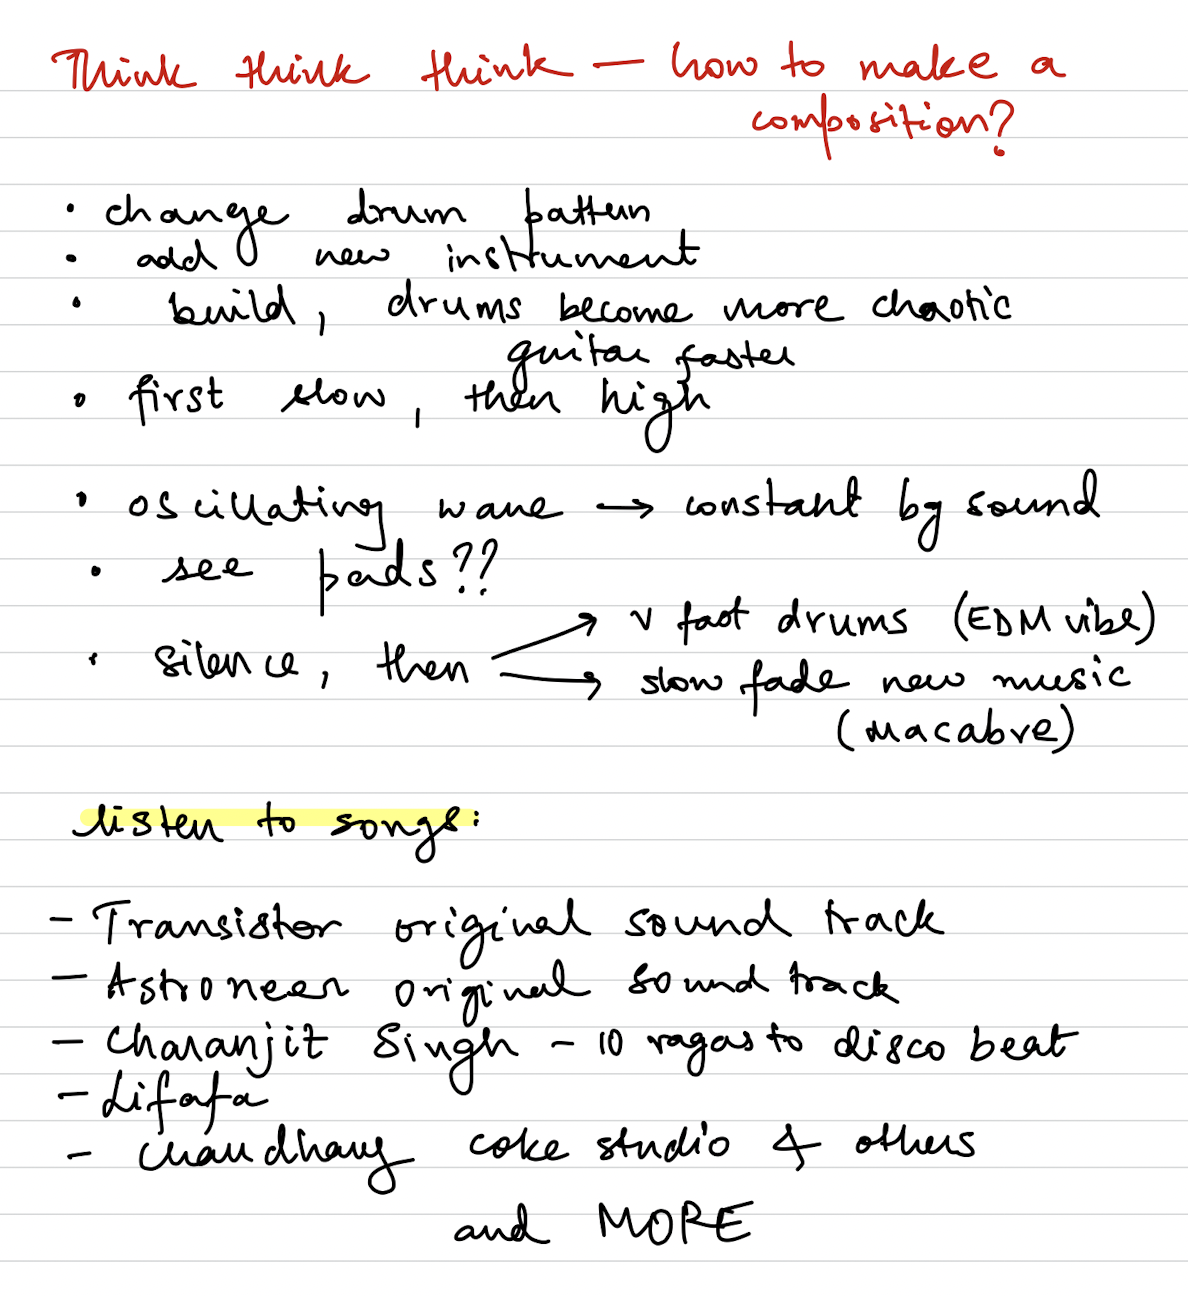 Think think think — how to make a
composition?
• change drum pattern
• add new instrument
• build, drums become more chaotic
guitar faster
• first slow, then high
• oscillating wave → constant bg sound
• see pads??
• silence, then → v fast drums (EDM vibe)
→ slow fade new music
(macabre)
listen to songs:
- Transistor original sound track
- Astroneer original sound track
- Charanjit Singh - 10 ragas to disco beat
- Lifafa
- Chaudhary coke studio & others
and MORE